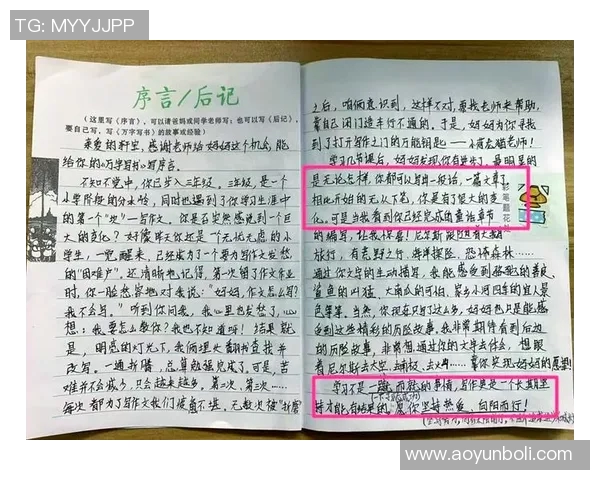 TG: MYYJJPP
序言/后记
(这里写《序言》,可以请爸妈或同学老师写;也可以写《后记》,
要自己写,写《万字写书》的故事或经验)
亲爱的轩宝,感谢老师给妈妈这个机会,能
给你的《万字写书》写序言。
不知不觉中,你已步入三年级。三年级,是一个
小学阶段的分水岭,同时也遇到了你学习生涯中
的第一个"坎"—写作文。你是否突然感觉到一个巨
大的变化?好像昨天你还是一个无忧无虑的小
学生,一觉醒来,已经成为了一个要为写作文发愁
的"困难户"。还清晰地记得,第一次留了作文作业
时,你一脸愁容地对我说:"妈妈,作文怎么写?
我不会写。"听到你问我,我心里也发愁了,心
想,我要怎么教你?我也不知道呀!结果就
是,明亮的灯光下,我俩埋头翻书查找并
改写。一通折腾,总算勉强完成了。可是,苦
难并不会减少,只会越来越多。第二次、第三次……
每次都为了写作文我们疲惫不堪。无数次被"折磨"
之后,咱俩意识到,这样不对,要找老师来帮助,
靠自己闭门造车行不通的。于是,妈妈为你寻找
到了打开写作之门的万能钥匙——老师!
学习几节课后,妈妈发现你有进步了。最明显的
是无论怎样,你都可以写出一段话,一篇文章了,
相比开始的无从下笔,你是有了很大的变
化。可是当我看到你已经完成的童话章节
的编写,让我惊喜!尼尔斯跟随着大雁
旅行,有荒野之行、海洋探险、恐怖森林……
通过你文字的生动描写,我能感受到骆驼的善良、
鲨鱼的凶猛、大南瓜的可怕、家乡小河四季的宜人景
色等等。当然,你现在只写了这么多,妈妈也只是能感
受到这些精彩的历险故事,我非常期待看到后边
的历险故事,非常想通过你的文字去体会,想跟
着尼尔斯去太空、南极、去……靠你实现妈妈的愿望!
学习不是一蹴而就的事情,写作更是一个长期坚
持才能有结果的。愿你坚持热爱,向阳而行!
彩笔题花处
www.aoyunboli.com